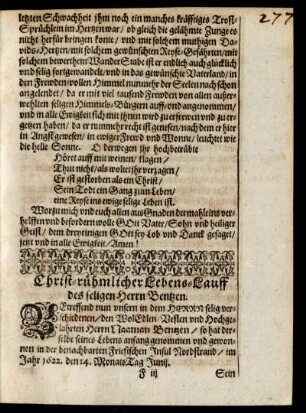 277
letzten Schwachheit jhm noch ein manches kräfftiges Trost-
Sprüchlein im Hertzen war / ob gleich die gelähmte Zunge es
nicht herfür bringen konte / und mit solchem muthigen Da-
vids-Hertzen / mit solchem gewünschten Reyse-Gefährten / mit
solchem bewerthem Wander Stabe ist er endlich auch glücklich
und selig fortgewandelt / und in das gewünschte Vaterland / in
den Freudenvollen Himmel nunmehr der Seelen nach schon
angelendet / da er mit viel tausend Freuden von allen außer-
wehlten seligen Himmels-Bürgern auff- und angenommen /
und in alle Ewigkeit sich mit jhnen wird zu erfrewen und zu er-
getzen haben / da er nunmehr recht ist genesen / nach dem er hier
in Angst gewesen / in ewiger Frewd und Wonne / leuchtet wie
die helle Sonne. O derwegen jhr hochbetrübte
Höret auff mit weinen / klagen /
Thut nicht / als woltet jhr verzagen /
Er ist gestorben als ein Christ /
Sein Todt ein Gang zum Leben /
eine Reyse ins ewige selige Leben ist.
Worzu mich und euch allen aus Gnaden dermahleins ver-
helffen und befordern wolle GOtt Vater / Sohn und heiliger
Geist / dem dreyeinigen GOtt sey Lob und Danck gesaget /
jetzt und in alle Ewigkeit / Amen!
Christ-rühmlicher Lebens-Lauff
des seligen Herrn Bentzen.
BEtreffend nun unsern in dem HERRN selig ver-
schiedenen / den WolEdlen Vesten und Hochge-
lahrten Herrn Naaman Bentzen / so hat der-
selbe seines Lebens anfang genommen und gewon-
nen in der benachbarten Friesischen Insul Nordstrand / im
Jahr 1622. den 14. Monats Tag Junij.
F iij Sein